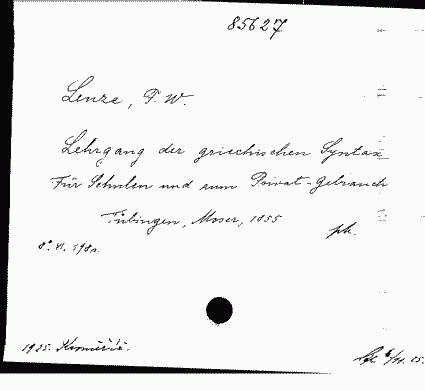 85627
Lenze, F. W.
Lehrgang der griechischen Syntax
Für Schulen und zum Privat-Gebrauch
Tübingen, Moser, 1855
8° VI. 198 s.
ph.
1925.